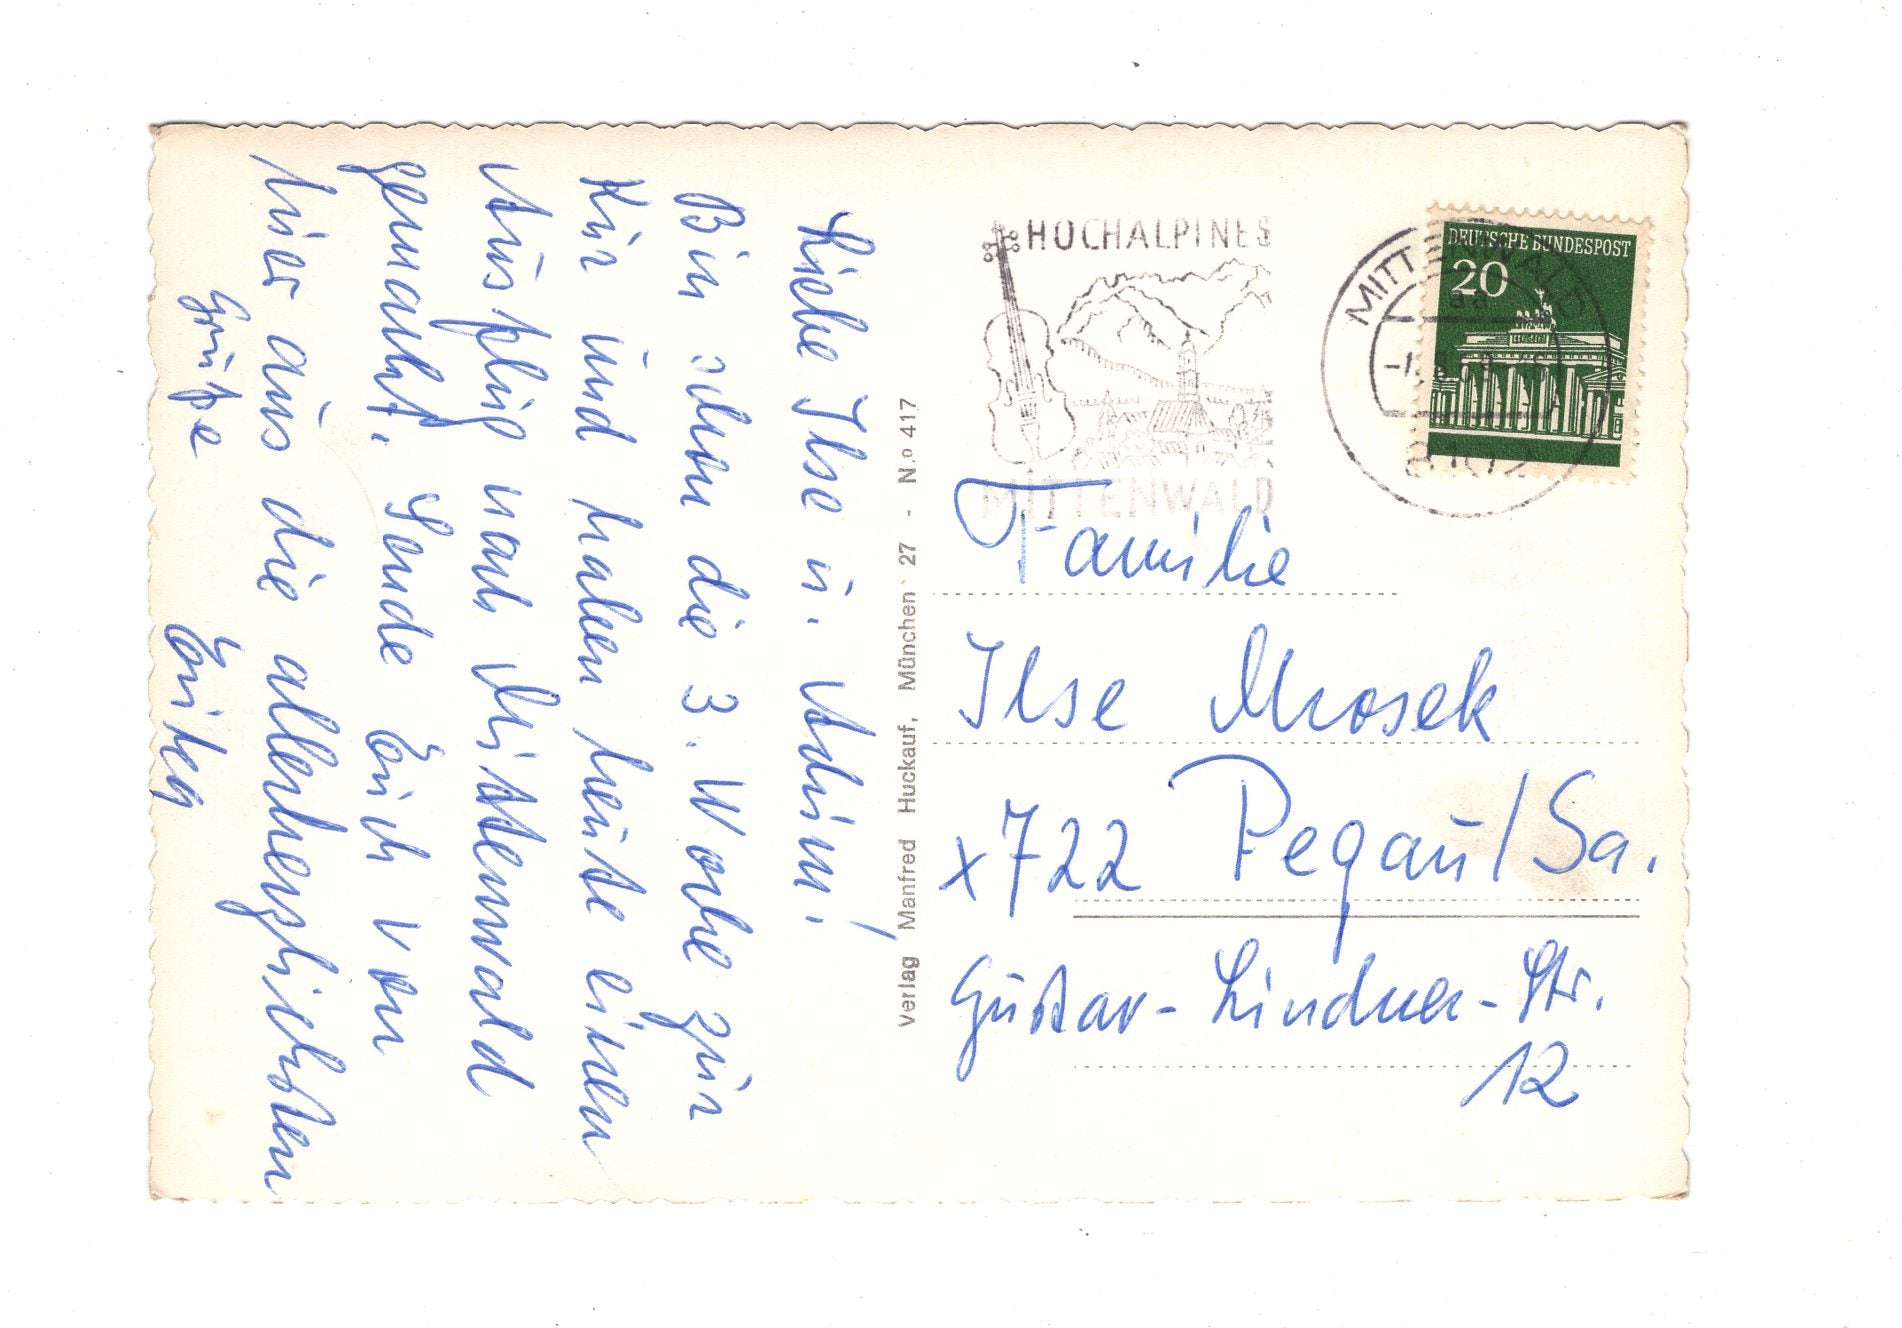 Liebe Ilse u. Achim!
Bin schon die 3. Woche zur
Kur und haben heute einen
Ausflug nach Mittenwald
gemacht. Sende Euch von
hier aus die allerherzlichsten
Grüße Erika
Verlag Manfred Huckauf, München 27 - N.º 417
HOCHALPINES
MITTENWALD
MITTENWALD
DEUTSCHE BUNDESPOST
20
Familie
Ilse Mrosek
x 722 Pegau/Sa.
Gustav-Lindner-Str.
12